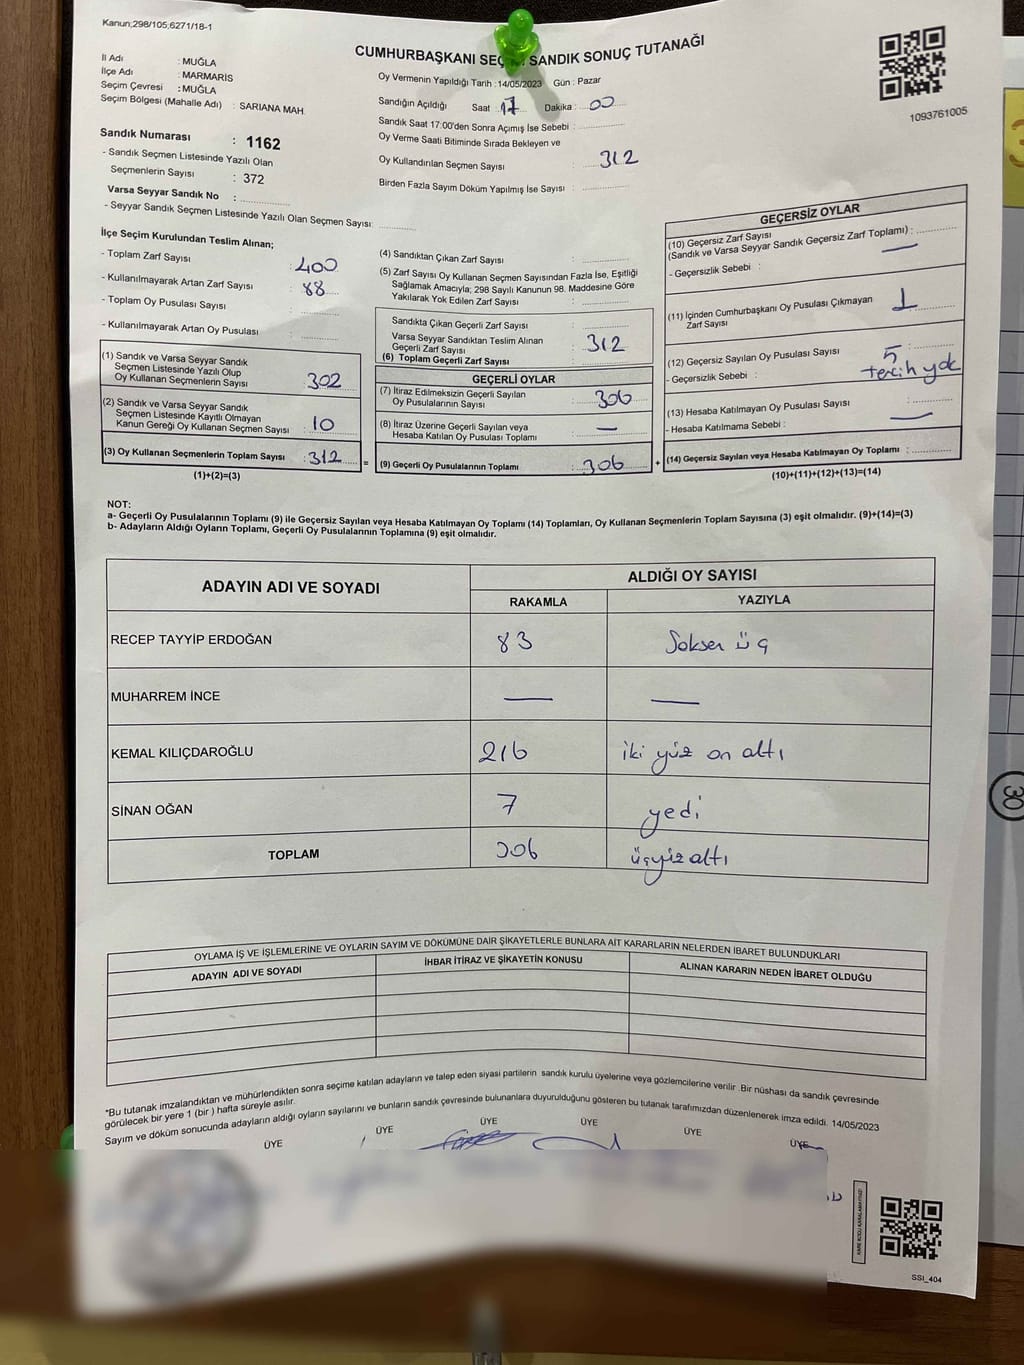 Kanun;298/105;6271/18-1
CUMHURBAŞKANI SEÇİM SANDIK SONUÇ TUTANAĞI
İl Adı : MUĞLA
İlçe Adı : MARMARİS
Seçim Çevresi : MUĞLA
Seçim Bölgesi (Mahalle Adı) : SARIANA MAH.
Sandık Numarası : 1162
- Sandık Seçmen Listesinde Yazılı Olan
Seçmenlerin Sayısı : 372
Varsa Seyyar Sandık No :
- Seyyar Sandık Seçmen Listesinde Yazılı Olan Seçmen Sayısı:
Oy Vermenin Yapıldığı Tarih : 14/05/2023 Gün : Pazar
Sandığın Açıldığı Saat 17 Dakika : 00
Sandık Saat 17:00'den Sonra Açımış İse Sebebi :
Oy Verme Saati Bitiminde Sırada Bekleyen ve
Oy Kullandırılan Seçmen Sayısı : 312
Birden Fazla Sayım Döküm Yapılmış İse Sayısı :
1093761005
İlçe Seçim Kurulundan Teslim Alınan;
- Toplam Zarf Sayısı : 400
- Kullanılmayarak Artan Zarf Sayısı : 88
- Toplam Oy Pusulası Sayısı :
- Kullanılmayarak Artan Oy Pusulası :
(1) Sandık ve Varsa Seyyar Sandık
Seçmen Listesinde Yazılı Olup
Oy Kullanan Seçmenlerin Sayısı : 302
(2) Sandık ve Varsa Seyyar Sandık
Seçmen Listesinde Kayıtlı Olmayan
Kanun Gereği Oy Kullanan Seçmen Sayısı : 10
(3) Oy Kullanan Seçmenlerin Toplam Sayısı : 312 =
(1)+(2)=(3)
(4) Sandıktan Çıkan Zarf Sayısı :
(5) Zarf Sayısı Oy Kullanan Seçmen Sayısından Fazla İse, Eşitliği
Sağlamak Amacıyla; 298 Sayılı Kanunun 98. Maddesine Göre
Yakılarak Yok Edilen Zarf Sayısı :
Sandıkta Çıkan Geçerli Zarf Sayısı :
Varsa Seyyar Sandıktan Teslim Alınan
Geçerli Zarf Sayısı
(6) Toplam Geçerli Zarf Sayısı : 312
GEÇERLİ OYLAR
(7) İtiraz Edilmeksizin Geçerli Sayılan
Oy Pusulalarının Sayısı : 306
(8) İtiraz Üzerine Geçerli Sayılan veya
Hesaba Katılan Oy Pusulası Toplamı : —
(9) Geçerli Oy Pusulalarının Toplamı : 306 +
GEÇERSİZ OYLAR
(10) Geçersiz Zarf Sayısı
(Sandık ve Varsa Seyyar Sandık Geçersiz Zarf Toplamı) : —
- Geçersizlik Sebebi :
(11) İçinden Cumhurbaşkanı Oy Pusulası Çıkmayan
Zarf Sayısı : 1
(12) Geçersiz Sayılan Oy Pusulası Sayısı : 5
- Geçersizlik Sebebi : tercih yok
(13) Hesaba Katılmayan Oy Pusulası Sayısı : —
- Hesaba Katılmama Sebebi :
(14) Geçersiz Sayılan veya Hesaba Katılmayan Oy Toplamı :
(10)+(11)+(12)+(13)=(14)
NOT:
a- Geçerli Oy Pusulalarının Toplamı (9) ile Geçersiz Sayılan veya Hesaba Katılmayan Oy Toplamı (14) Toplamları, Oy Kullanan Seçmenlerin Toplam Sayısına (3) eşit olmalıdır. (9)+(14)=(3)
b- Adayların Aldığı Oyların Toplamı, Geçerli Oy Pusulalarının Toplamına (9) eşit olmalıdır.
ADAYIN ADI VE SOYADI ALDIĞI OY SAYISI
RAKAMLA YAZIYLA
RECEP TAYYİP ERDOĞAN 83 Seksen üç
MUHARREM İNCE — —
KEMAL KILIÇDAROĞLU 216 iki yüz on altı
SİNAN OĞAN 7 yedi
TOPLAM 306 üçyüz altı
OYLAMA İŞ VE İŞLEMLERİNE VE OYLARIN SAYIM VE DÖKÜMÜNE DAİR ŞİKAYETLERLE BUNLARA AİT KARARLARIN NELERDEN İBARET BULUNDUKLARI
ADAYIN ADI VE SOYADI İHBAR İTİRAZ VE ŞİKAYETİN KONUSU ALINAN KARARIN NEDEN İBARET OLDUĞU
"Bu tutanak imzalandıktan ve mühürlendikten sonra seçime katılan adayların ve talep eden siyasi partilerin sandık kurulu üyelerine veya gözlemcilerine verilir .Bir nüshası da sandık çevresinde
görülecek bir yere 1 (bir ) hafta süreyle asılır.
Sayım ve döküm sonucunda adayların aldığı oyların sayılarını ve bunların sandık çevresinde bulunanlara duyurulduğunu gösteren bu tutanak tarafımızdan düzenlenerek imza edildi. 14/05/2023
ÜYE ÜYE ÜYE ÜYE ÜYE ÜYE
SSİ_404